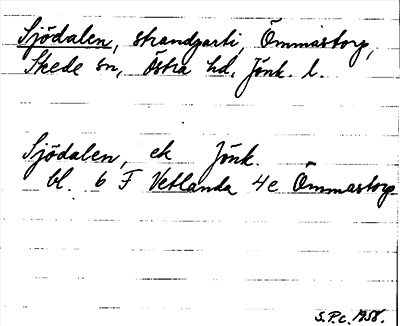 Sjödalen, strandparti, Ömmastorp,
Skede sn, Östra hd, Jönk. l.
Sjödalen, ek Jönk.
bl. 6 F Vetlanda 4e Ömmastorp
S.P.c. 1958.